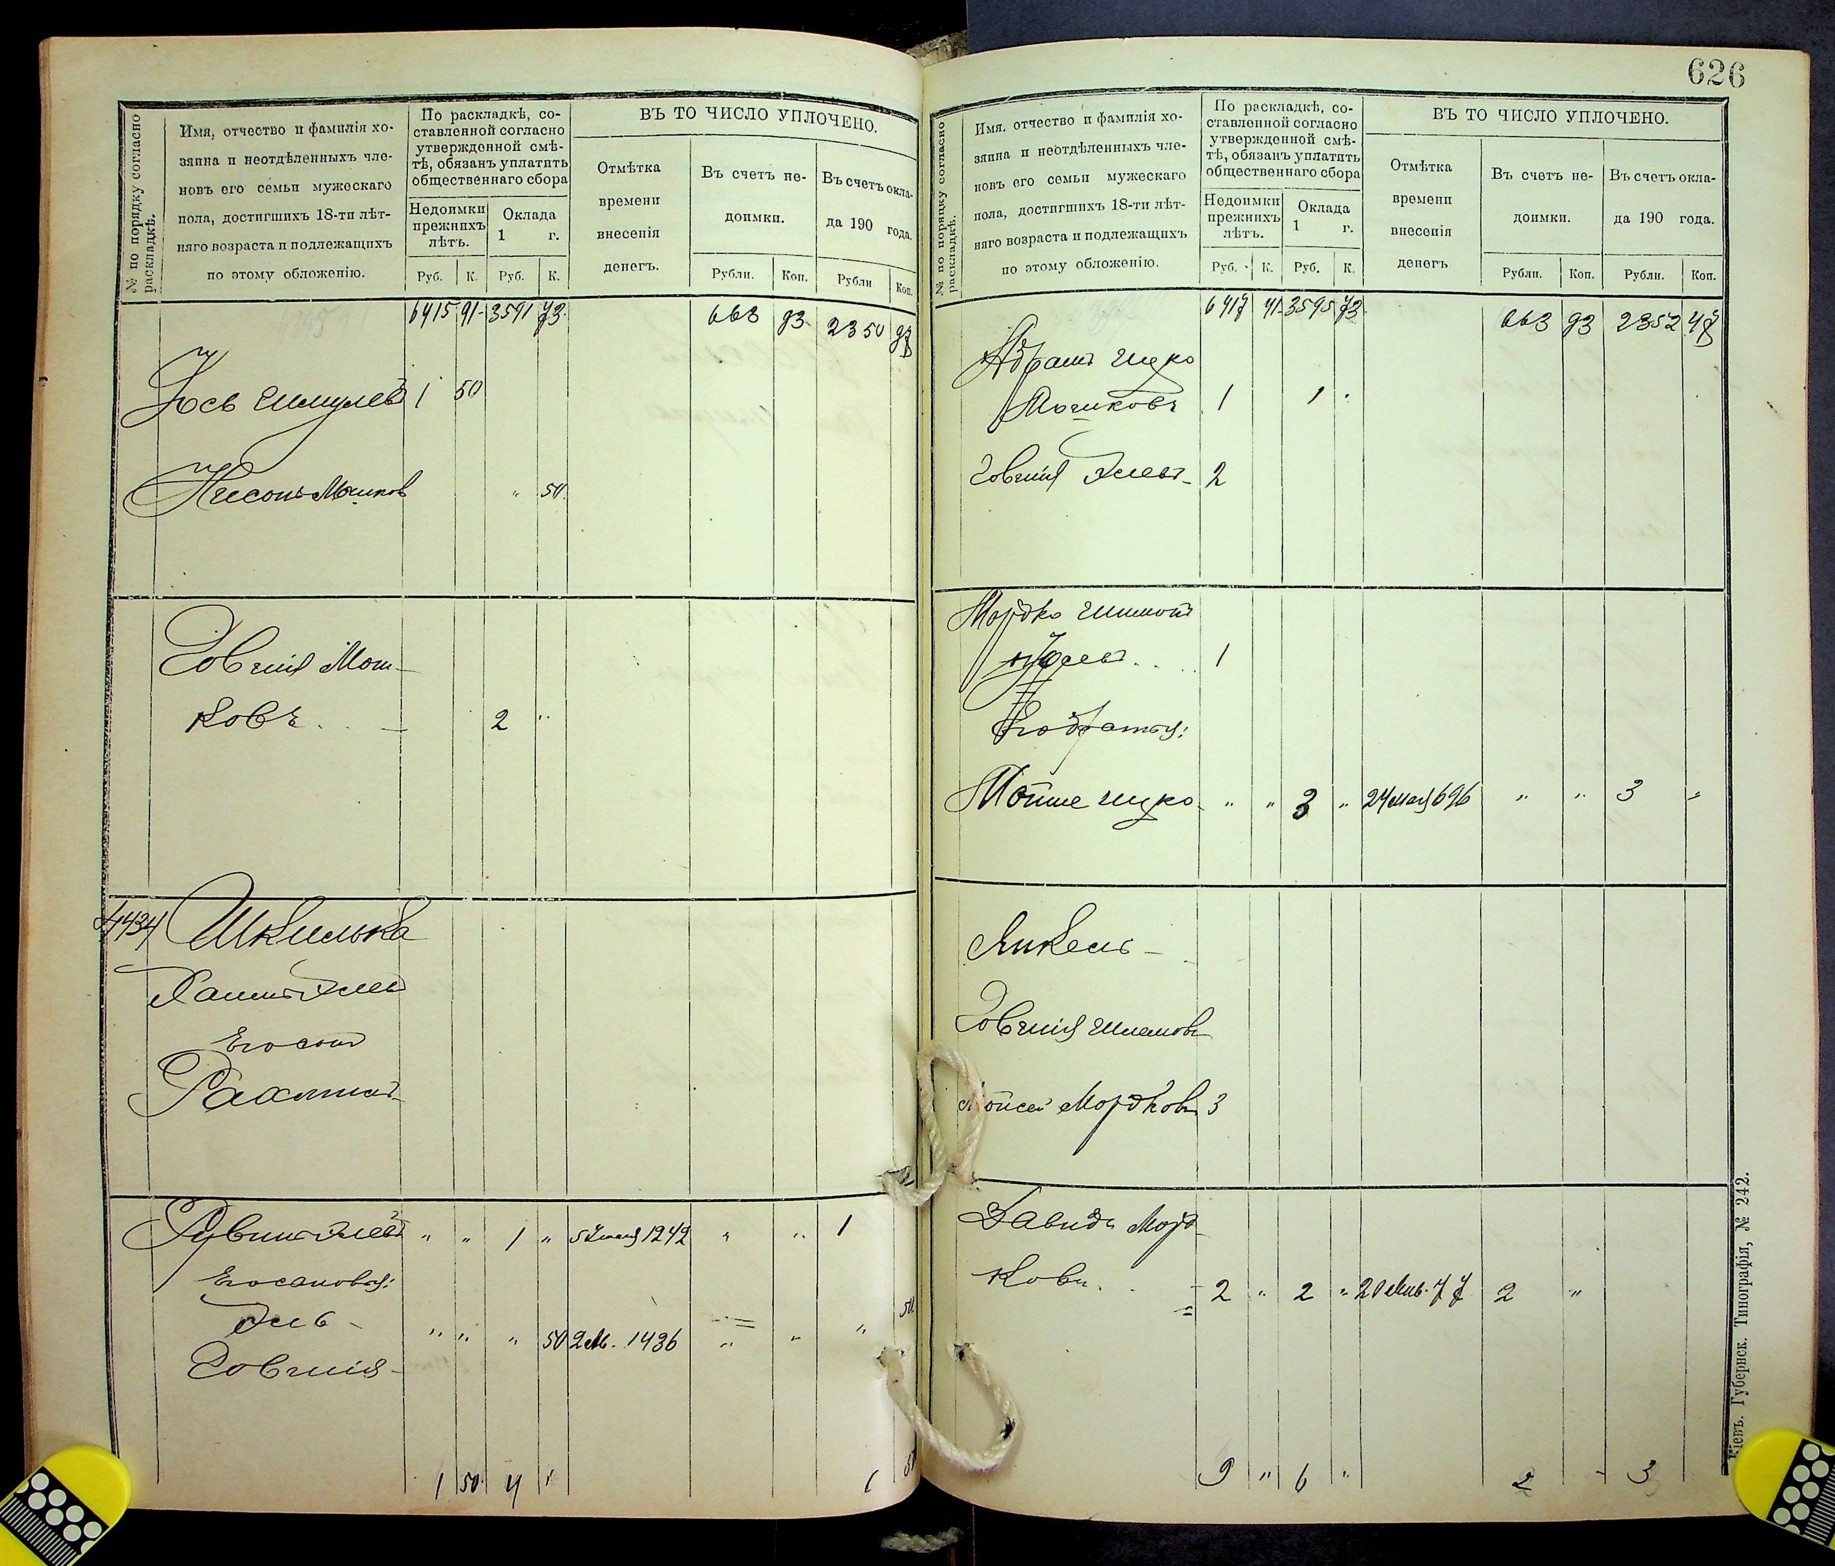 № по порядку согласно раскладкѣ.
Имя, отчество и фамилія хо-
зяина и неотдѣленныхъ чле-
новъ его семьи мужескаго
пола, достигшихъ 18-ти лѣт-
няго возраста и подлежащихъ
по этому обложенію.
По раскладкѣ, со-
ставленной согласно
утвержденной смѣ-
тѣ, обязанъ уплатить
общественнаго сбора
Недоимки
прежнихъ
лѣтъ.
Оклада
1 г.
Руб. К. Руб. К.
ВЪ ТО ЧИСЛО УПЛОЧЕНО.
Отмѣтка
времени
внесенія
денегъ.
Въ счетъ не-
доимки.
Въ счетъ окла-
да 190 года.
Рубли. Коп. Рубли Коп.
6415 91 3591 73 663 93 2350 97
Іось Шмулевъ 1 50
Нисонъ Мошков " 50
Говшія Мош-
ковъ 2 "
4434 Шкилька
Хаимъ Элев
Его сынъ
Рахмиль
Рувинъ Элевъ " " 1 " 5 Іюня 1242 " " 1
Его сановья:
Эль - " " " 50 2 1436 " " " 50
Говшія -
1 50 4 " 1 50
626
№ по порядку согласно раскладкѣ.
Имя, отчество и фамилія хо-
зяина и неотдѣленныхъ чле-
новъ его семьи мужескаго
пола, достигшихъ 18-ти лѣт-
няго возраста и подлежащихъ
по этому обложенію.
По раскладкѣ, со-
ставленной согласно
утвержденной смѣ-
тѣ, обязанъ уплатить
общественнаго сбора
Недоимки
прежнихъ
лѣтъ.
Оклада
1 г.
Руб. К. Руб. К.
ВЪ ТО ЧИСЛО УПЛОЧЕНО.
Отмѣтка
времени
внесенія
денегъ
Въ счетъ не-
доимки.
Въ счетъ окла-
да 190 года.
Рубли. Коп. Рубли. Коп.
6417 41 3595 73 663 93 2352 47
Абрамъ Ицко
Мошковъ 1 1
Говшія Элевъ 2
Мордко Шимонъ
Іоселъ 1
Его братья:
Мошко Ицко " " 3 " 24 мая 696 " " 3 "
Янкель -
Говшія Шлемовъ
Мойсей Мордковъ 3
Давидъ Морд-
ковъ 2 " 2 " 20 Янв. 77 2 "
9 " 6 " 2 - 3
Кіевъ. Губернск. Типографія, № 242.